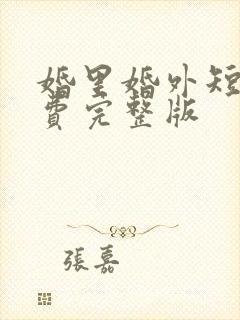 婚里婚外短
费完整版
張嘉